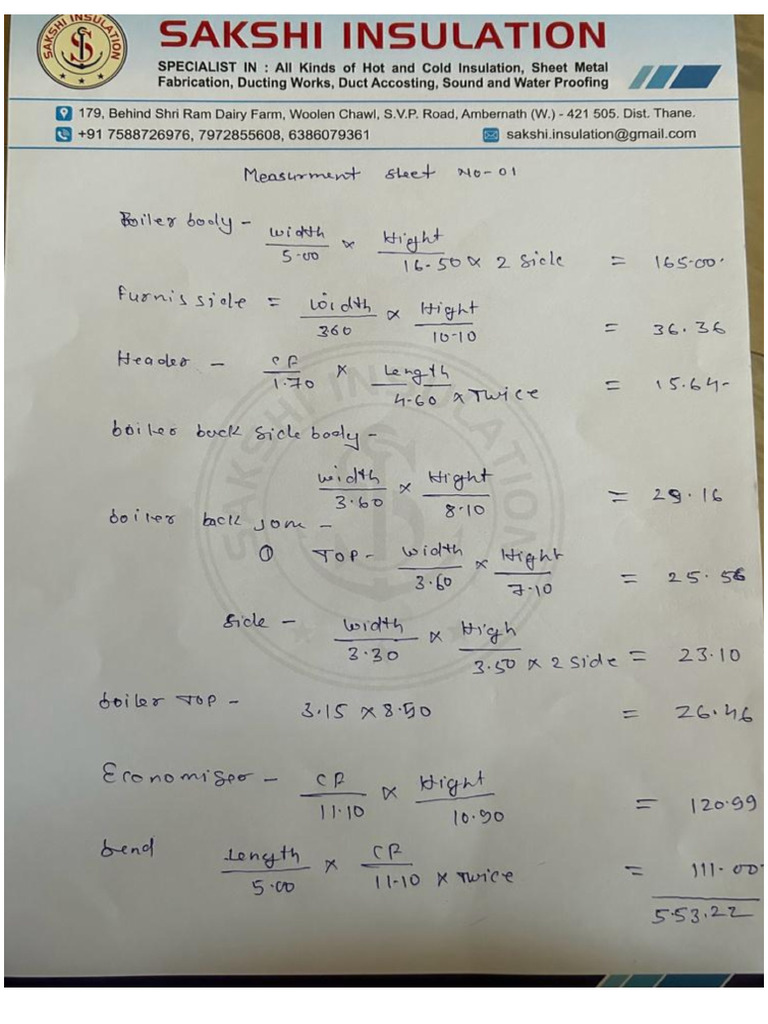 SAKSHI INSULATION
SAKSHI INSULATION
SPECIALIST IN : All Kinds of Hot and Cold Insulation, Sheet Metal
Fabrication, Ducting Works, Duct Accosting, Sound and Water Proofing
179, Behind Shri Ram Dairy Farm, Woolen Chawl, S.V.P. Road, Ambernath (W.) - 421 505. Dist. Thane.
+91 7588726976, 7972855608, 6386079361 sakshi.insulation@gmail.com
Measurment sheet No-01
Boiler body - width/5.00 × Hight/16.50 × 2 Side = 165.00
furnis side = width/360 × Hight/10-10 = 36.36
Header - CF/1.70 × Length/4.60 × Twice = 15.64-
boiler back side body -
width/3.60 × Hight/8.10 = 29.16
boiler back
① TOP - width/3.60 × Hight/7.10 = 25.56
Side - width/3.30 × High/3.50 × 2 Side = 23.10
boiler TOP - 3.15 × 8.40 = 26.46
Economiser - CF/11.10 × Hight/10.90 = 120.99
bend Length/5.00 × CF/11-10 × Twice = 111.00
553.22
SAKSHI INSULATION